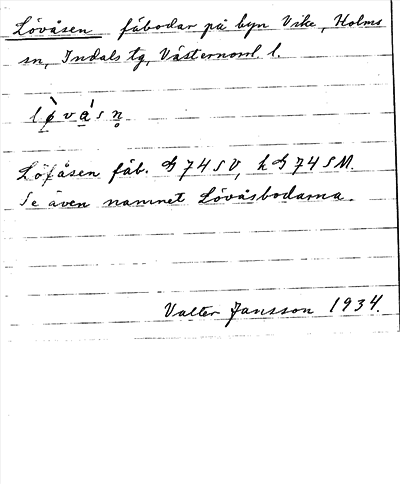 Lövåsen fäbodar på byn Vike, Holms
sn, Indals tg, Västernorrl. l.
lø̀vásn̥
Löfåsen fäb. G 74 SV, h G 74 SM.
Se även namnet Lövåsbodarna.
Valter Jansson 1934.